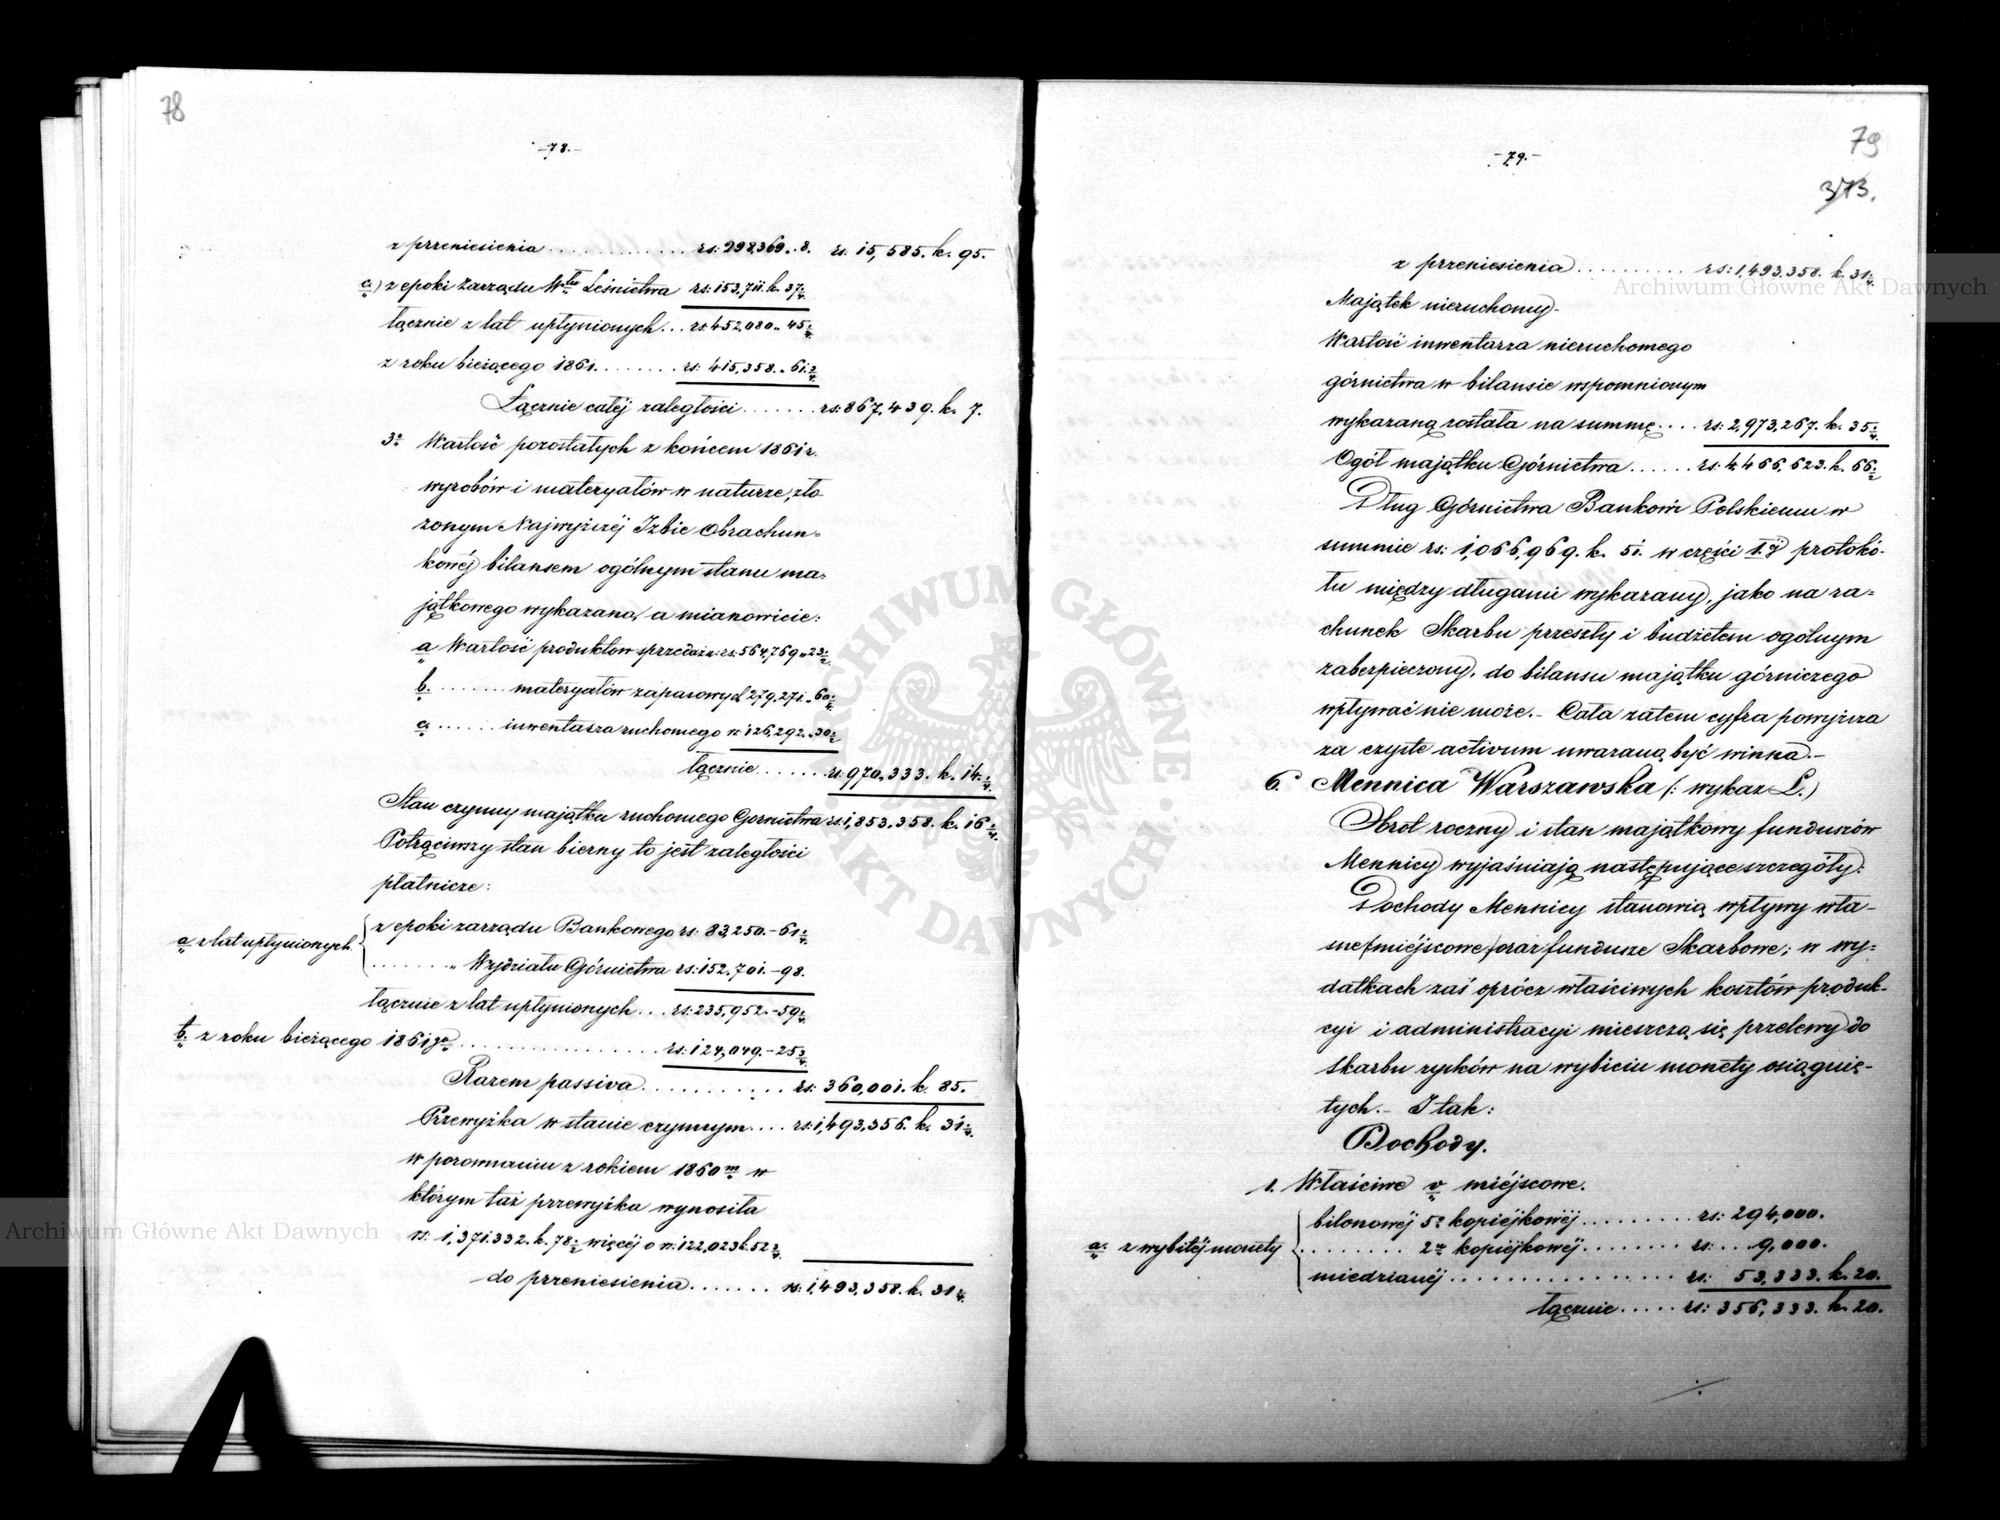 78
-78.-
z przeniesienia . . . . . . . . . . . . rs: 298,369. „ 8. rs: 15,585. k. 95.
c) z epoki Zarządu Włu Leśnictwa rs: 153,711. k. 37
łącznie z lat upłynionych . . . rs 452,080 „ 45
z roku bieżącego 1861 . . . . . . . . rs: 415,358. „ 61
Łącznie całéj zaległości . . . . . . . rs: 867,439. k. 7.
3º Wartość pozostałych z końcem 1861 r.
wyrobów i materyałów w naturze, zło
żonym Najwyższéj Izbie Obrachun=
kowéj bilansem ogólnym stanu ma=
jątkowego wykazana, a mianowicie:
a Wartość produktów sprzedażn: rs: 564,769 „ 23
b. . . . . . . . . materyałów zapasowych 279,271. „ 60
c. . . . . . . inwentarza ruchomego rs 126,292. „ 30
łącznie . . . . . . . rs 970,333. k. 14
Stan czynny majątku ruchomego Gornictwa rs: 1,853,358. k. 16
Potrąciwszy stan bierny to jest zaległości
płatnicze:
a z lat upłynionych
z epoki zarządu Bankowego rs: 83,250. – 61
. . . . . . . „ Wydziału Górnictwa rs: 152,701. – 98.
łącznie z lat upłynionych . . . rs: 235,952. – 59
b. z roku bieżącego 1861go . . . . . . . . . . . . . . . . . rs: 124,049. – 25
Razem passiva . . . . . . . . . . . . rs: 360,001. k. 85.
Przewyżka w stanie czynnym . . . . rs: 1,493,356. k. 31
w porownaniu z rokiem 1860m w
którym taż przewyżka wynosiła
rs: 1,371,332. k. 78 więcéj o rs: 122,023 k. 52
do przeniesienia . . . . . . . rs: 1,493,358. k. 31
79
-79.-
373.
z przeniesienia . . . . . . . . . . rs: 1,493,358. k. 31
Majątek nieruchomy.-
Wartość inwentarza nieruchomego
górnictwa w bilansie wspomnionym
wykazaną została na summę . . . . rs: 2,973,267. k. 35
Ogół majątku Górnictwa . . . . . . rs: 4,466,623. k. 66
Dług Górnictwa Bankowi Polskiemu w
summie rs: 1,066,969. k. 51. w części I.éj protokó-
łu między długami wykazany, jako na ra=
chunek Skarbu przeszły i budżetem ogólnym
zabezpieczony, do bilansu majątku górniczego
wpływać nie może.- Cała zatem cyfra powyższa
za czyste activum uważaną być winna.-
6. Mennica Warszawska (: wykaz L.)
Obrot roczny i stan majątkowy funduszów
Mennicy wyjaśniają następujące szczegóły:
Dochody Mennicy stanowią wpływy wła-
sne (miéjscowe) oraz fundusze Skarbowe; w wy=
datkach zaś oprócz właściwych kosztów produk-
cyi i administracyi mieszczą się przelewy do
skarbu zysków na wybiciu monety osiągnię-
tych.- I tak:
Dochody.
1. Właściwe v miéjscowe.
a. z wybitéj monety
bilonowéj 5º kopiéjkowéj . . . . . . . . . rs: 294,000.
. . . . . . . . . 2u kopiéjkowéj . . . . . . . . rs: . . . 9,000.
miedzianéj . . . . . . . . . . . . . . . . . . rs: 53,333. k. 20.
łącznie . . . . . rs: 356,333. k. 20.
Archiwum Główne Akt Dawnych
Archiwum Główne Akt Dawnych
ARCHIWUM GŁÓWNE AKT DAWNYCH